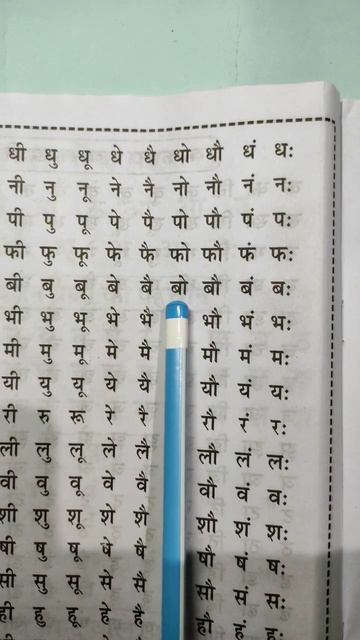 धी धु धू धे धै धो धौ धं धः
नी नु नू ने नै नो नौ नं नः
पी पु पू पे पै पो पौ पं पः
फी फु फू फे फै फो फौ फं फः
बी बु बू बे बै बो बौ बं बः
भी भु भू भे भै भौ भं भः
मी मु मू मे मै मौ मं मः
यी यु यू ये यै यौ यं यः
री रु रू रे रै रौ रं रः
ली लु लू ले लै लौ लं लः
वी वु वू वे वै वौ वं वः
शी शु शू शे शै शौ शं शः
षी षु षू षे षै षौ षं षः
सी सु सू से सै सौ सं सः
ही हु हू हे है हौ हं हः